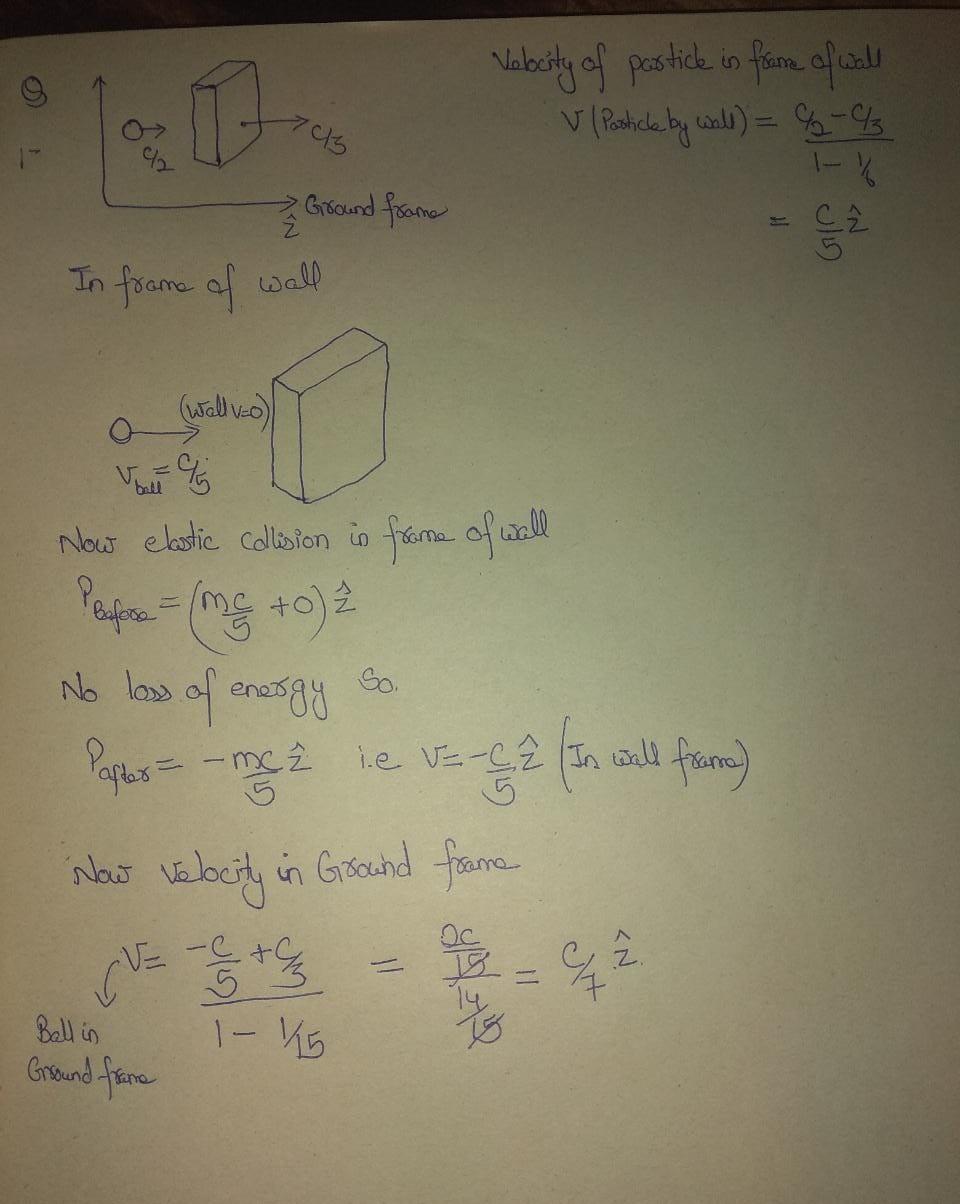 Q
1-
c/2
c/3
ẑ
Ground frame
Velocity of particle in frame of wall
V (Particle by wall) = (c/2 - c/3) / (1 - 1/6)
= c/5 ẑ
In frame of wall
(Wall v=0)
V ball = c/5
Now elastic collision in frame of wall
P Before = (mc/5 + 0) ẑ
No loss of energy So.
P after = -mc/5 ẑ i.e V = -c/5 ẑ (In wall frame)
Now velocity in Ground frame
V = (-c/5 + c/3) / (1 - 1/15) = (2c/15) / (14/15) = c/7 ẑ.
Ball in
Ground frame